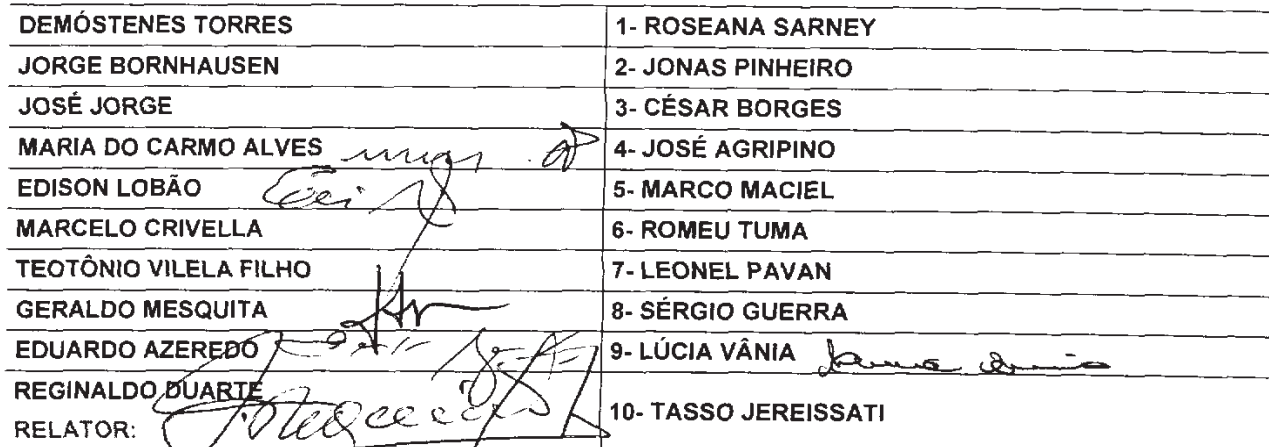 DEMÓSTENES TORRES 1- ROSEANA SARNEY
JORGE BORNHAUSEN 2- JONAS PINHEIRO
JOSÉ JORGE 3- CÉSAR BORGES
MARIA DO CARMO ALVES 4- JOSÉ AGRIPINO
EDISON LOBÃO 5- MARCO MACIEL
MARCELO CRIVELLA 6- ROMEU TUMA
TEOTÔNIO VILELA FILHO 7- LEONEL PAVAN
GERALDO MESQUITA 8- SÉRGIO GUERRA
EDUARDO AZEREDO 9- LÚCIA VÂNIA
REGINALDO DUARTE
RELATOR: 10- TASSO JEREISSATI